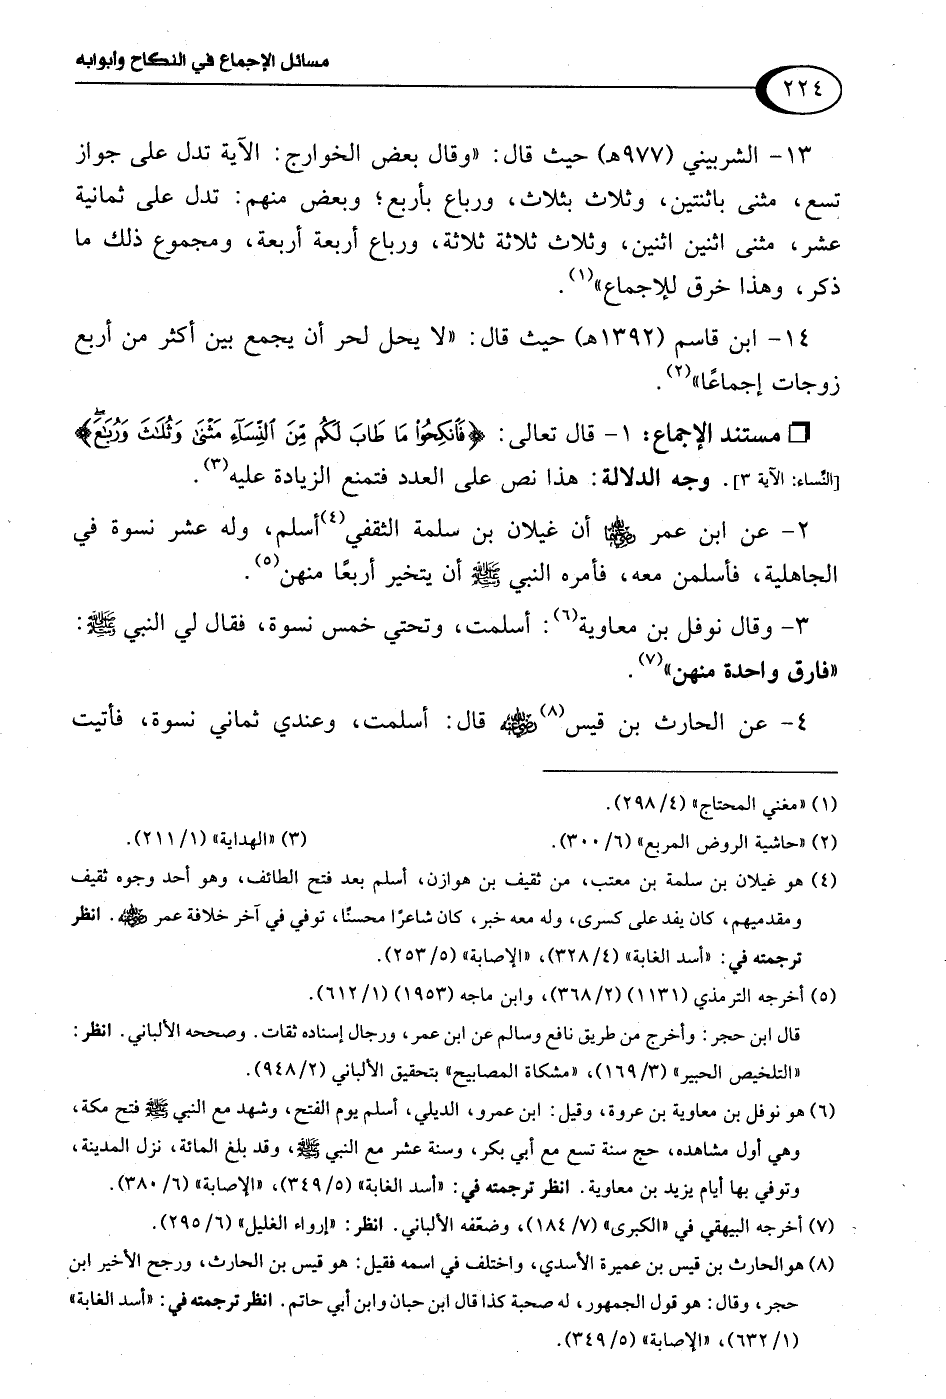 مسائل الإجماع في النكاح وأبوابه
٢٢٤
١٣- الشربيني (٩٧٧هـ) حيث قال: «وقال بعض الخوارج: الآية تدل على جواز
تسع، مثنى باثنتين، وثلاث بثلاث، ورباع بأربع؛ وبعض منهم: تدل على ثمانية
عشر، مثنى اثنين اثنين، وثلاث ثلاثة ثلاثة، ورباع أربعة أربعة، ومجموع ذلك ما
ذكر، وهذا خرق للإجماع»(١).
١٤- ابن قاسم (١٣٩٢هـ) حيث قال: «لا يحل لحر أن يجمع بين أكثر من أربع
زوجات إجماعًا»(٢).
❒ مستند الإجماع: ١- قال تعالى: ﴿فَٱنكِحُوا۟ مَا طَابَ لَكُم مِّنَ ٱلنِّسَآءِ مَثْنَىٰ وَثُلَـٰثَ وَرُبَـٰعَ ۖ﴾
[النِّساء: الآية ٣]. وجه الدلالة: هذا نص على العدد فتمنع الزيادة عليه(٣).
٢- عن ابن عمر ﵄ أن غيلان بن سلمة الثقفي(٤)أسلم، وله عشر نسوة في
الجاهلية، فأسلمن معه، فأمره النبي ﷺ أن يتخير أربعًا منهن(٥).
٣- وقال نوفل بن معاوية(٦): أسلمت، وتحتي خمس نسوة، فقال لي النبي ﷺ:
«فارق واحدة منهن»(٧).
٤- عن الحارث بن قيس(٨)﵁ قال: أسلمت، وعندي ثماني نسوة، فأتيت
(١) «مغني المحتاج» (٤/ ٢٩٨).
(٢) «حاشية الروض المربع» (٦/ ٣٠٠). (٣) «الهداية» (١/ ٢١١).
(٤) هو غيلان بن سلمة بن معتب، من ثقيف بن هوازن، أسلم بعد فتح الطائف، وهو أحد وجوه ثقيف
ومقدميهم، كان يفد على كسرى، وله معه خبر، كان شاعرًا محسنًا، توفي في آخر خلافة عمر ﵁. انظر
ترجمته في: «أسد الغابة» (٤/ ٣٢٨)، «الإصابة» (٥/ ٢٥٣).
(٥) أخرجه الترمذي (١١٣١) (٢/ ٣٦٨)، وابن ماجه (١٩٥٣) (١/ ٦١٢).
قال ابن حجر: وأخرج من طريق نافع وسالم عن ابن عمر، ورجال إسناده ثقات. وصححه الألباني. انظر:
«التلخيص الحبير» (٣/ ١٦٩)، «مشكاة المصابيح» بتحقيق الألباني (٢/ ٩٤٨).
(٦) هو نوفل بن معاوية بن عروة، وقيل: ابن عمرو، الديلي، أسلم يوم الفتح، وشهد مع النبي ﷺ فتح مكة،
وهي أول مشاهده، حج سنة تسع مع أبي بكر، وسنة عشر مع النبي ﷺ، وقد بلغ المائة، نزل المدينة،
وتوفي بها أيام يزيد بن معاوية. انظر ترجمته في: «أسد الغابة» (٥/ ٣٤٩)، «الإصابة» (٦/ ٣٨٠).
(٧) أخرجه البيهقي في «الكبرى» (٧/ ١٨٤)، وضعّفه الألباني. انظر: «إرواء الغليل» (٦/ ٢٩٥).
(٨) هو الحارث بن قيس بن عميرة الأسدي، واختلف في اسمه فقيل: هو قيس بن الحارث، ورجح الأخير ابن
حجر، وقال: هو قول الجمهور، له صحبة كذا قال ابن حبان وابن أبي حاتم. انظر ترجمته في: «أسد الغابة»
(١/ ٦٣٢)، «الإصابة» (٥/ ٣٤٩).